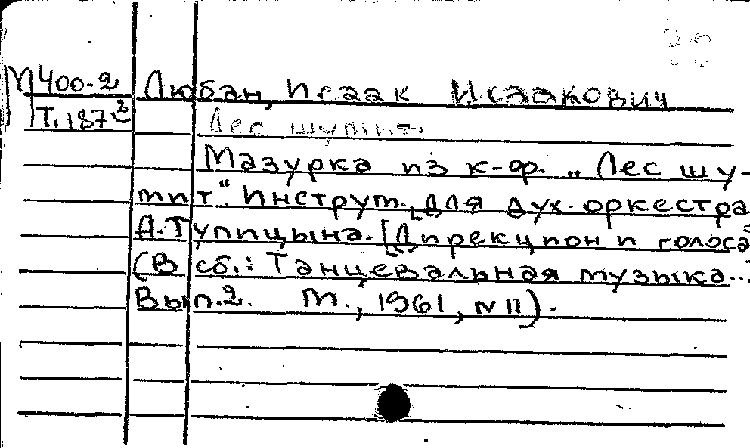 М 400-2 Любан, Исаак Исаакович
Т. 187² Лес шумит.
Мазурка из к-ф. „Лес шу-
мит". Инструм. для дух. оркестра
А. Тупицына. [Дирекцион и голоса
(В сб.: Танцевальная музыка...
Вып. 2. М., 1961, №11).